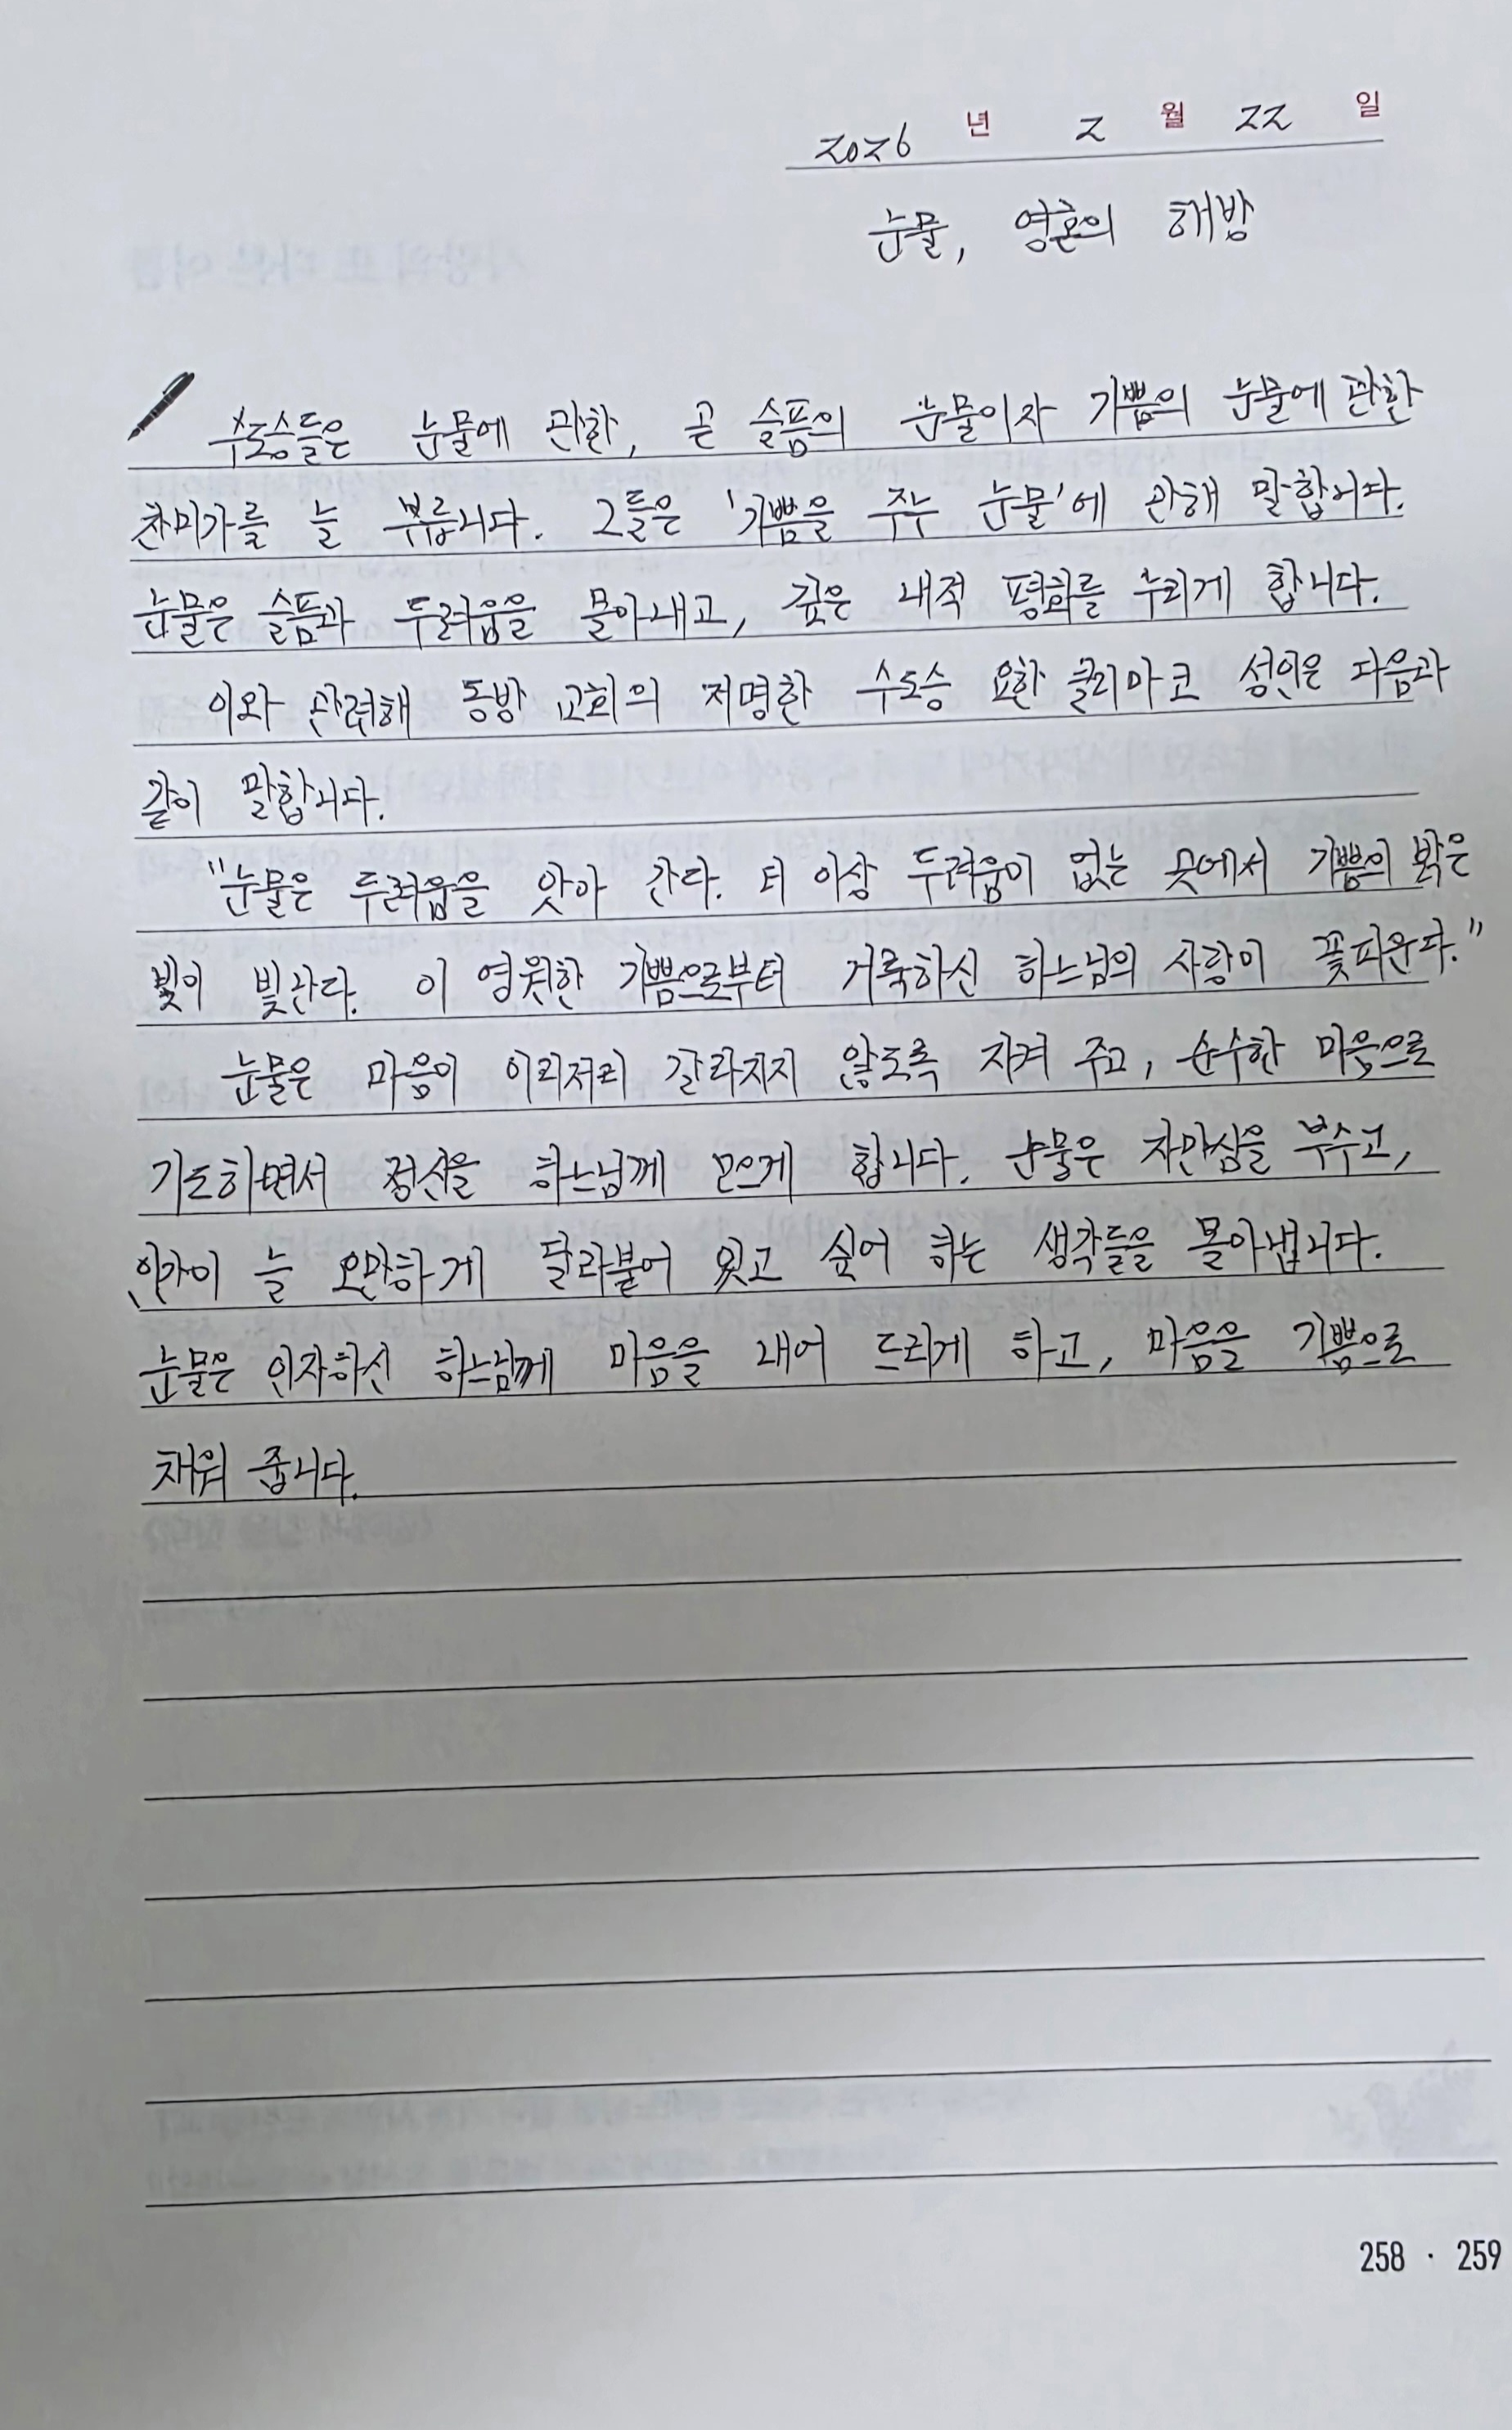 2026 년 2 월 22 일
눈물, 영혼의 해방
수도승들은 눈물에 관한, 곧 슬픔의 눈물이자 기쁨의 눈물에 관한
찬미가를 늘 부릅니다. 그들은 '기쁨을 주는 눈물'에 관해 말합니다.
눈물은 슬픔과 두려움을 몰아내고, 깊은 내적 평화를 누리게 합니다.
이와 관련해 동방 교회의 저명한 수도승 요한 클리마코 성인은 다음과
같이 말합니다.
"눈물은 두려움을 앗아 간다. 더 이상 두려움이 없는 곳에서 기쁨의 밝은
빛이 빛난다. 이 영원한 기쁨으로부터 거룩하신 하느님의 사랑이 꽃피운다."
눈물은 마음이 이리저리 갈라지지 않도록 지켜 주고, 순수한 마음으로
기도하면서 정신을 하느님께 모으게 합니다. 눈물은 자만심을 부수고,
인간이 늘 오만하게 달라붙어 있고 싶어 하는 생각들을 몰아냅니다.
눈물은 인자하신 하느님께 마음을 내어 드리게 하고, 마음을 기쁨으로
채워 줍니다.
258 · 259